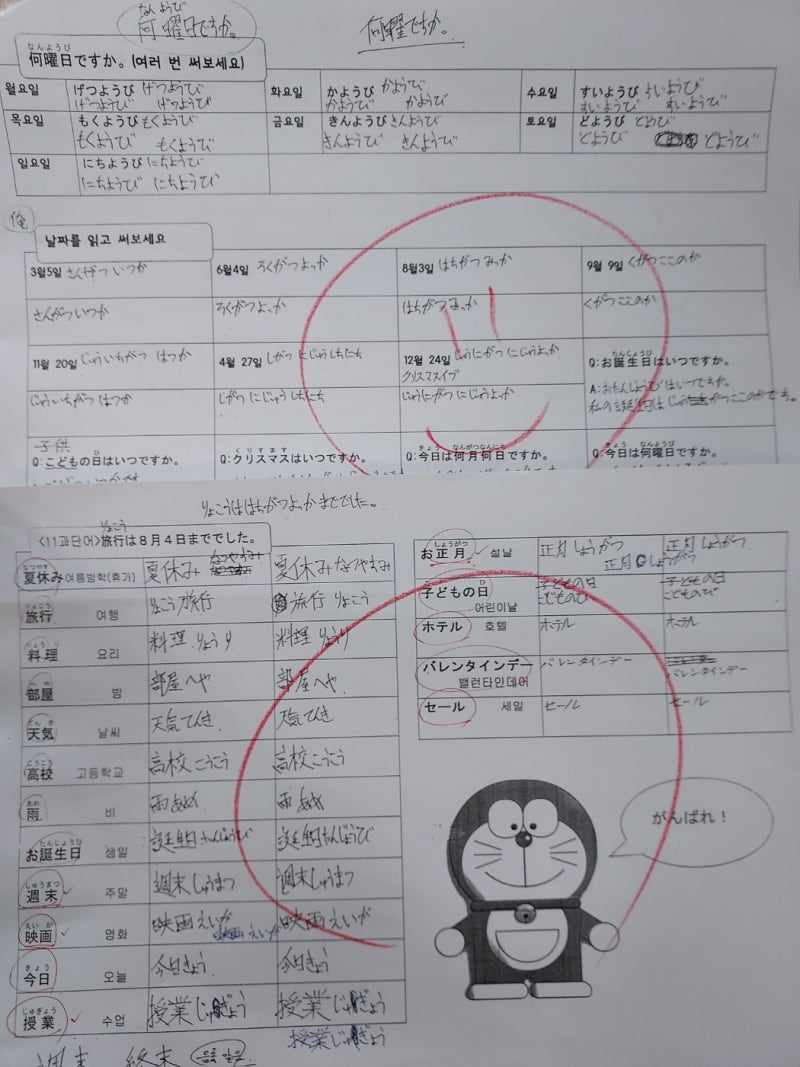 なんようび
何曜日ですか。
何曜ですか。
なんようび
何曜日ですか。(여러 번 써보세요)
월요일 げつようび げつようび
げつようび げつようび
화요일 かようび かようび
かようび かようび
수요일 すいようび すいようび
すいようび すいようび
목요일 もくようび もくようび
もくようび もくようび
금요일 きんようび きんようび
きんようび きんようび
토요일 どようび どようび
どようび どようび
일요일 にちようび にちようび
にちようび にちようび
俺
날짜를 읽고 써보세요
3월5일 さんがつ いつか
6월4일 ろくがつよっか
8월3일 はちがつ みっか
9월 9일 くがつ ここのか
さんがつ いつか
ろくがつよっか
はちがつ みっか
くがつ ここのか
11월 20일 じゅういちがつ はつか
4월 27일 しがつ にじゅうしちにち
12월 24일 じゅうにがつ にじゅうよっか
クリスマスイブ
たんじょうび
Q:お誕生日はいつですか。
じゅういちがつ はつか
しがつ にじゅうしちにち
じゅうにがつ にじゅうよっか
A:おたんじょうびはいつですか。
私の誕生日は じゅうがつここのかです。
子供
ひ
Q:こどもの日はいつですか。
くりすます
Q:クリスマスはいつですか。
きょう なんがつなんにち
Q:今日は何月何日ですか。
きょう なんようび
Q:今日は何曜日ですか。
りょこうははちがつよっかまででした。
りょこう
<11과단어>旅行は8月4日まででした。
なつやす
夏休み 여름방학(휴가) 夏休み なつやすみ 夏休み なつやすみ
りょこう
旅行 여행 りょこう 旅行 旅行 りょこう
りょうり
料理 요리 料理 りょうり 料理 りょうり
へや
部屋 방 部屋 へや 部屋 へや
てんき
天気 날씨 天気 てんき 天気 てんき
こうこう
高校 고등학교 高校 こうこう 高校 こうこう
あめ
雨 비 雨 あめ 雨 あめ
たんじょうび
お誕生日 생일 誕生日 たんじょうび 誕生日 たんじょうび
しゅうまつ
週末 주말 週末 しゅうまつ 週末 しゅうまつ
えいが
映画 영화 映画 えいが 映画 えいが 映画 えいが
きょう
今日 오늘 今日 きょう 今日 きょう
じゅぎょう
授業 수업 授業 じゅぎょう 授業 じゅぎょう
授業 じゅぎょう
週末 終末
しょうがつ
お正月 설날 正月 しょうがつ 正月 しょうがつ
正月 しょうがつ
こ ひ
子どもの日 어린이날 子どもの日 子どもの日
こどものび こどものび
ホテル 호텔 ホテル ホテル
バレンタインデー 밸런타인데이 バレンタインデー バレンタインデー
セール 세일 セール セール
がんばれ！